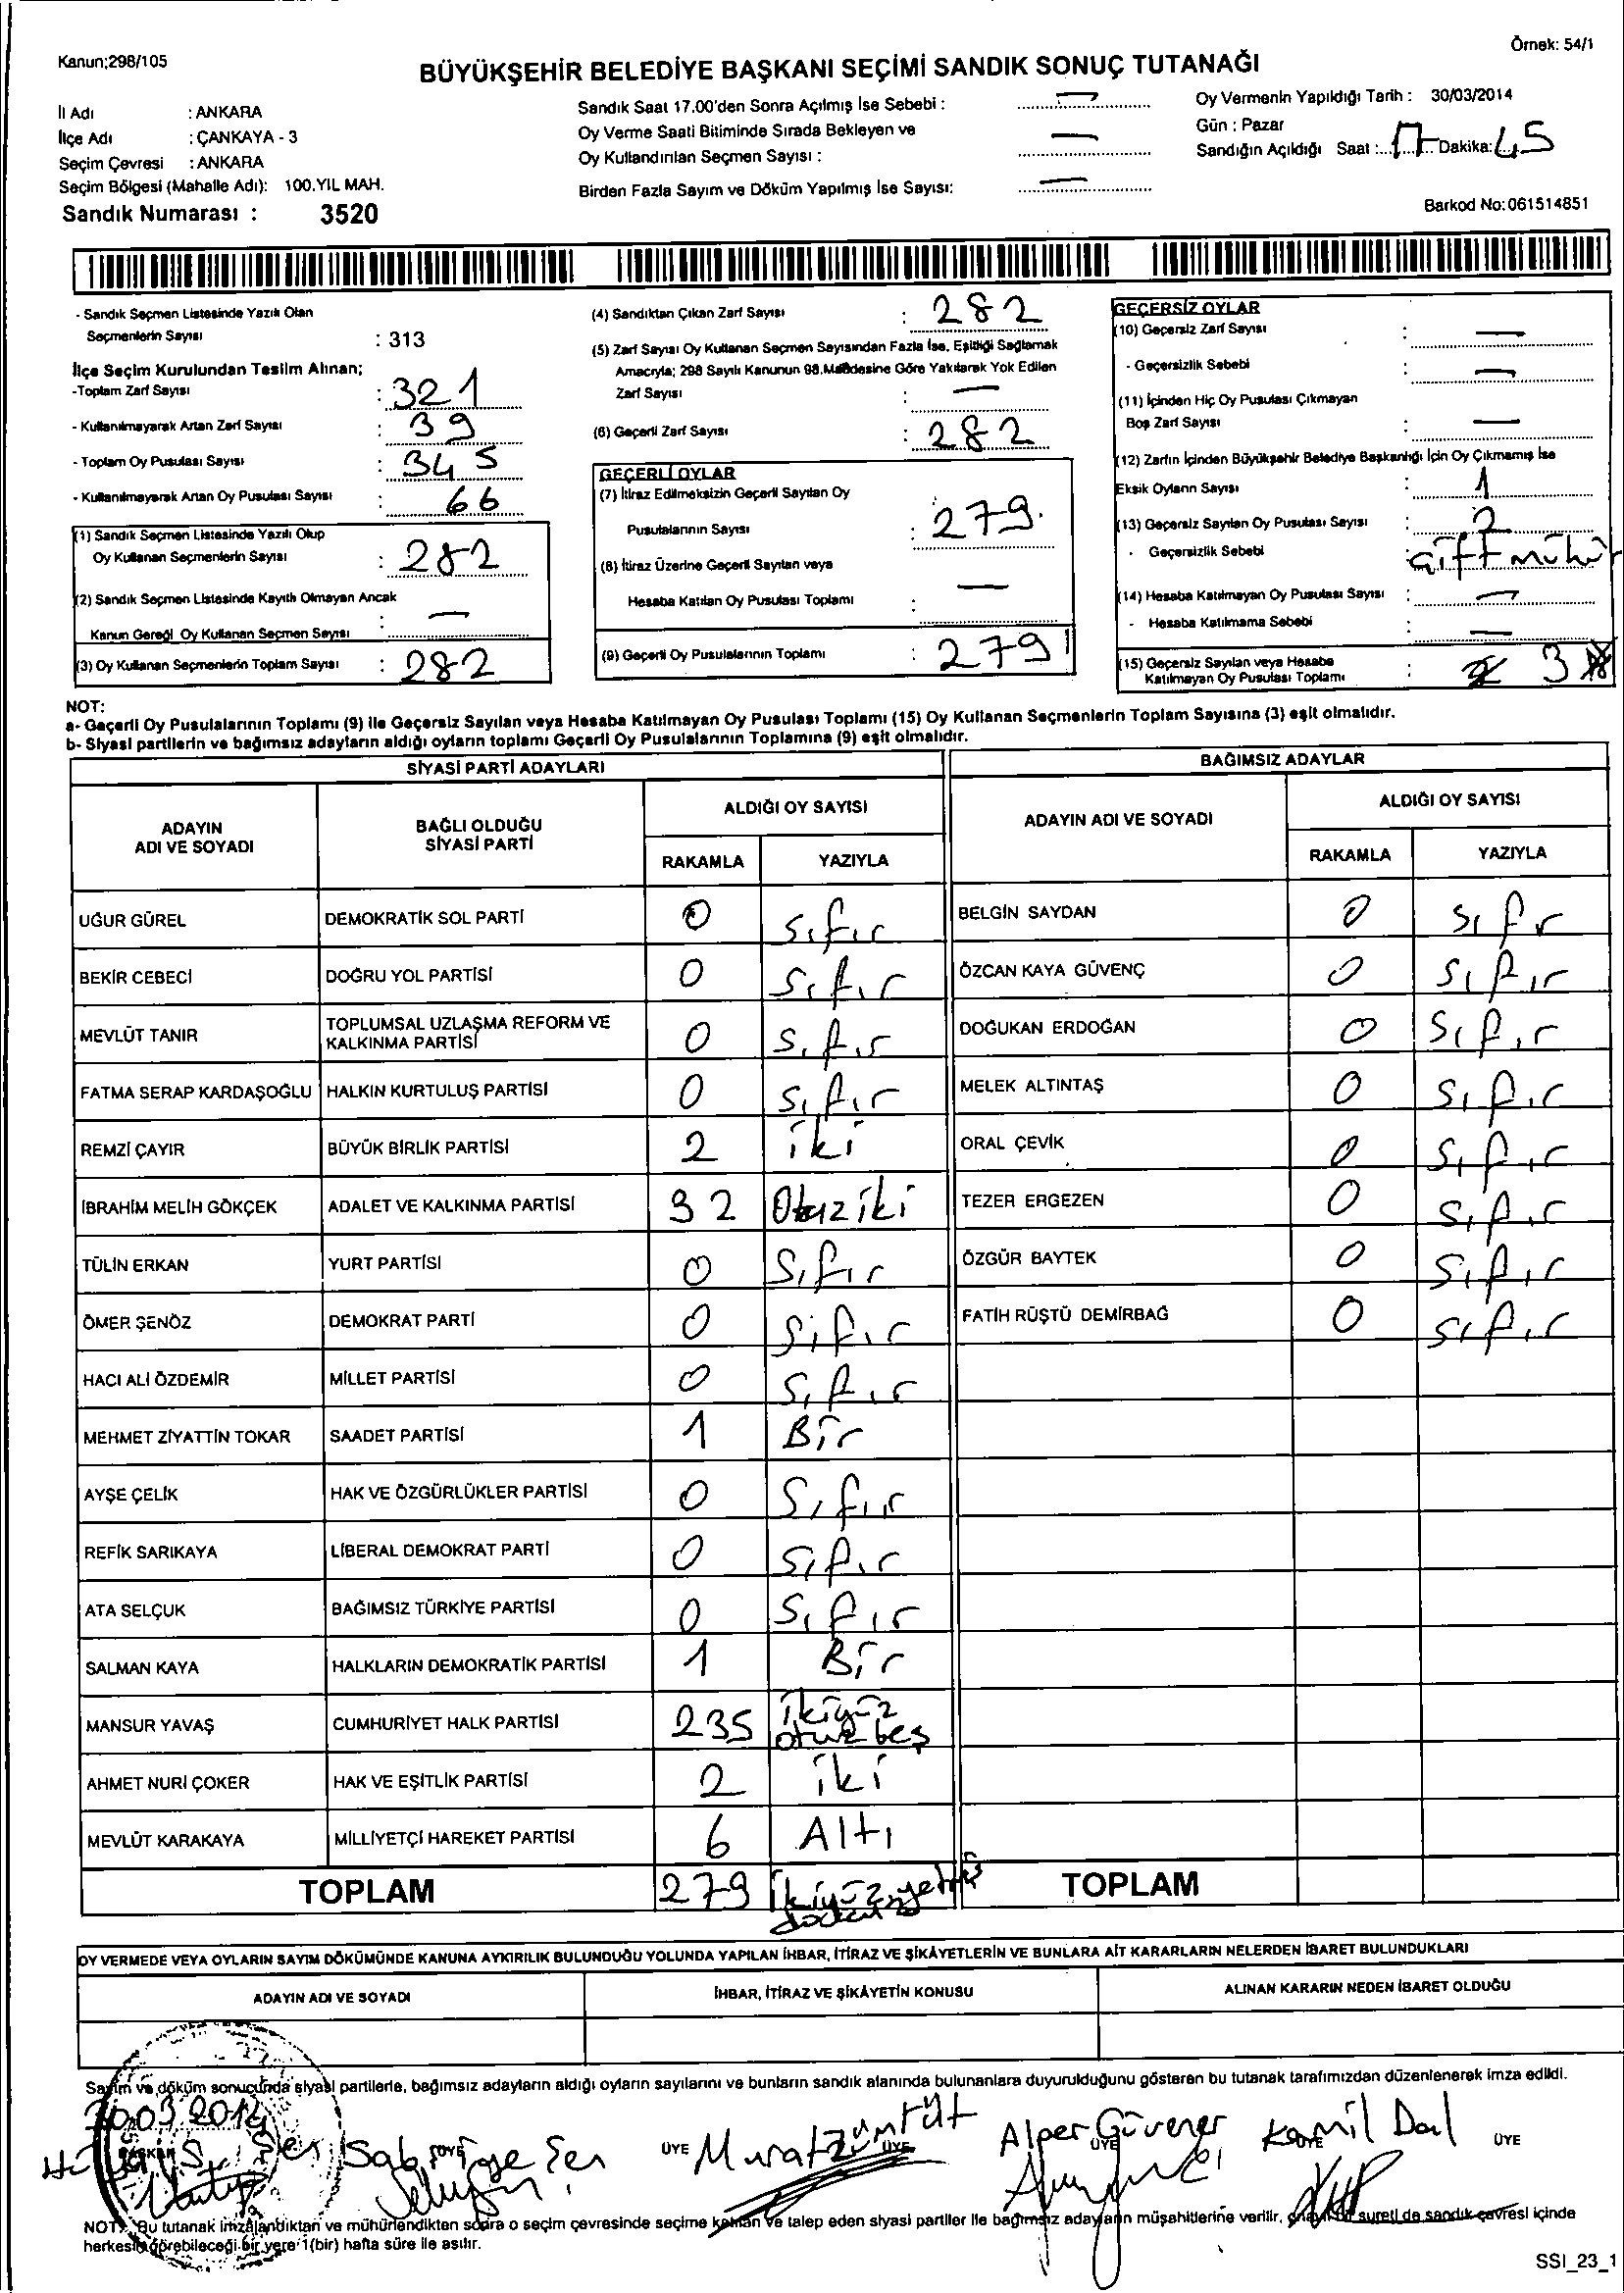 Kanun;298/105
Örnek: 54/1
BÜYÜKŞEHİR BELEDİYE BAŞKANI SEÇİMİ SANDIK SONUÇ TUTANAĞI
İl Adı : ANKARA
İlçe Adı : ÇANKAYA - 3
Seçim Çevresi : ANKARA
Seçim Bölgesi (Mahalle Adı): 100.YIL MAH.
Sandık Numarası : 3520
Sandık Saat 17.00'den Sonra Açılmış İse Sebebi : —
Oy Verme Saati Bitiminde Sırada Bekleyen ve
Oy Kullandırılan Seçmen Sayısı : —
Birden Fazla Sayım ve Döküm Yapılmış İse Sayısı: —
Oy Vermenin Yapıldığı Tarih : 30/03/2014
Gün : Pazar
Sandığın Açıldığı Saat : 17 Dakika: 45
Barkod No:061514851
- Sandık Seçmen Listesinde Yazılı Olan
Seçmenlerin Sayısı : 313
İlçe Seçim Kurulundan Teslim Alınan;
-Toplam Zarf Sayısı : 321
- Kullanılmayarak Artan Zarf Sayısı : 39
- Toplam Oy Pusulası Sayısı : 345
- Kullanılmayarak Artan Oy Pusulası Sayısı : 66
(1) Sandık Seçmen Listesinde Yazılı Olup
Oy Kullanan Seçmenlerin Sayısı : 282
(2) Sandık Seçmen Listesinde Kayıtlı Olmayan Ancak
Kanun Gereği Oy Kullanan Seçmen Sayısı : —
(3) Oy Kullanan Seçmenlerin Toplam Sayısı : 282
(4) Sandıktan Çıkan Zarf Sayısı : 282
(5) Zarf Sayısı Oy Kullanan Seçmen Sayısından Fazla İse, Eşitliği Sağlamak
Amacıyla; 298 Sayılı Kanunun 98.Maddesine Göre Yakılarak Yok Edilen
Zarf Sayısı : —
(6) Geçerli Zarf Sayısı : 282
GEÇERLİ OYLAR
(7) İtiraz Edilmeksizin Geçerli Sayılan Oy
Pusulalarının Sayısı : 279.
(8) İtiraz Üzerine Geçerli Sayılan veya
Hesaba Katılan Oy Pusulası Toplamı : —
(9) Geçerli Oy Pusulalarının Toplamı : 279
GEÇERSİZ OYLAR
(10) Geçersiz Zarf Sayısı : —
- Geçersizlik Sebebi : —
(11) İçinden Hiç Oy Pusulası Çıkmayan
Boş Zarf Sayısı : —
(12) Zarfın İçinden Büyükşehir Belediye Başkanlığı İçin Oy Çıkmamış İse
Eksik Oyların Sayısı : 1
(13) Geçersiz Sayılan Oy Pusulası Sayısı : 2
- Geçersizlik Sebebi : çift mühür
(14) Hesaba Katılmayan Oy Pusulası Sayısı : —
- Hesaba Katılmama Sebebi : —
(15) Geçersiz Sayılan veya Hesaba
Katılmayan Oy Pusulası Toplamı : 3
NOT:
a- Geçerli Oy Pusulalarının Toplamı (9) ile Geçersiz Sayılan veya Hesaba Katılmayan Oy Pusulası Toplamı (15) Oy Kullanan Seçmenlerin Toplam Sayısına (3) eşit olmalıdır.
b- Siyasi partilerin ve bağımsız adayların aldığı oyların toplamı Geçerli Oy Pusulalarının Toplamına (9) eşit olmalıdır.
SİYASİ PARTİ ADAYLARI
ADAYIN ADI VE SOYADI BAĞLI OLDUĞU SİYASİ PARTİ ALDIĞI OY SAYISI
RAKAMLA YAZIYLA
UĞUR GÜREL DEMOKRATİK SOL PARTİ 0 sıfır
BEKİR CEBECİ DOĞRU YOL PARTİSİ 0 sıfır
MEVLÜT TANIR TOPLUMSAL UZLAŞMA REFORM VE KALKINMA PARTİSİ 0 sıfır
FATMA SERAP KARDAŞOĞLU HALKIN KURTULUŞ PARTİSİ 0 sıfır
REMZİ ÇAYIR BÜYÜK BİRLİK PARTİSİ 2 iki
İBRAHİM MELİH GÖKÇEK ADALET VE KALKINMA PARTİSİ 32 Otuziki
TÜLİN ERKAN YURT PARTİSİ 0 Sıfır
ÖMER ŞENÖZ DEMOKRAT PARTİ 0 Sıfır
HACI ALİ ÖZDEMİR MİLLET PARTİSİ 0 Sıfır
MEHMET ZİYATTİN TOKAR SAADET PARTİSİ 1 Bir
AYŞE ÇELİK HAK VE ÖZGÜRLÜKLER PARTİSİ 0 Sıfır
REFİK SARIKAYA LİBERAL DEMOKRAT PARTİ 0 Sıfır
ATA SELÇUK BAĞIMSIZ TÜRKİYE PARTİSİ 0 Sıfır
SALMAN KAYA HALKLARIN DEMOKRATİK PARTİSİ 1 Bir
MANSUR YAVAŞ CUMHURİYET HALK PARTİSİ 235 İkiyüz otuz beş
AHMET NURİ ÇOKER HAK VE EŞİTLİK PARTİSİ 2 iki
MEVLÜT KARAKAYA MİLLİYETÇİ HAREKET PARTİSİ 6 Altı
TOPLAM 279 İkiyüz yetmiş dokuz
BAĞIMSIZ ADAYLAR
ADAYIN ADI VE SOYADI ALDIĞI OY SAYISI
RAKAMLA YAZIYLA
BELGİN SAYDAN 0 sıfr
ÖZCAN KAYA GÜVENÇ 0 sıfır
DOĞUKAN ERDOĞAN 0 Sıfır
MELEK ALTINTAŞ 0 Sıfır
ORAL ÇEVİK 0 Sıfır
TEZER ERGEZEN 0 sıfır
ÖZGÜR BAYTEK 0 sıfır
FATİH RÜŞTÜ DEMİRBAĞ 0 sıfır
TOPLAM
OY VERMEDE VEYA OYLARIN SAYIM DÖKÜMÜNDE KANUNA AYKIRILIK BULUNDUĞU YOLUNDA YAPILAN İHBAR, İTİRAZ VE ŞİKÂYETLERİN VE BUNLARA AİT KARARLARIN NELERDEN İBARET BULUNDUKLARI
ADAYIN ADI VE SOYADI İHBAR, İTİRAZ VE ŞİKÂYETİN KONUSU ALINAN KARARIN NEDEN İBARET OLDUĞU
Sayım ve döküm sonucunda siyasi partilerle, bağımsız adayların aldığı oyların sayılarını ve bunların sandık alanında bulunanlara duyurulduğunu gösteren bu tutanak tarafımızdan düzenlenerek imza edildi.
30.03.2014
BAŞKAN ÜYE ÜYE ÜYE ÜYE ÜYE ÜYE
Şen Murat Alper Güvener Kamil Dal
NOT: Bu tutanak imzalandıktan ve mühürlendikten sonra o seçim çevresinde seçime katılan ve talep eden siyasi partiler ile bağımsız adayların müşahitlerine verilir, onaylı bir sureti de sandık çevresi içinde
herkesin görebileceği bir yere 1(bir) hafta süre ile asılır.
SSI_23_1